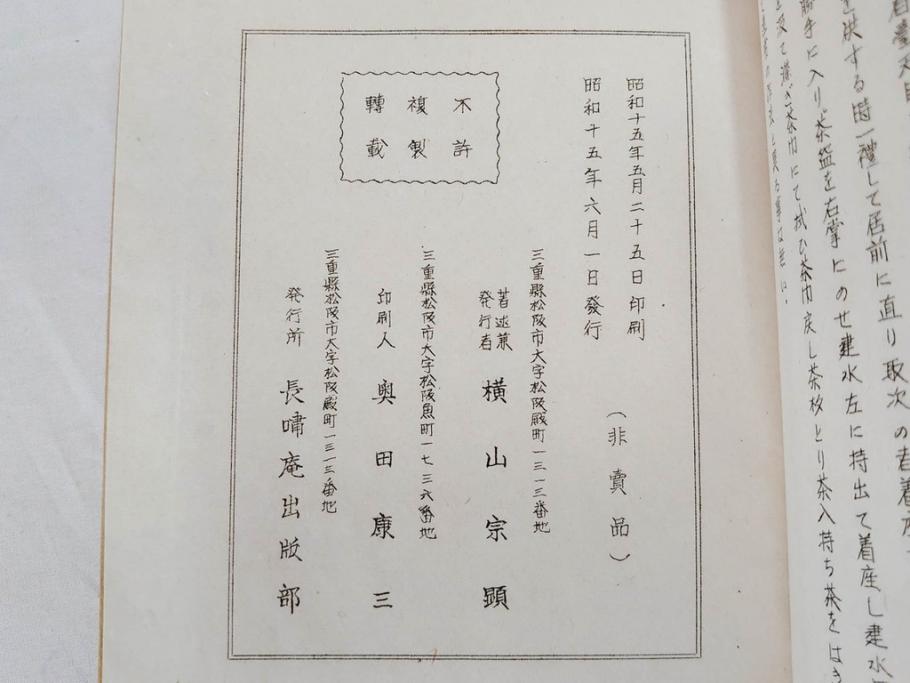 を決する時一禮して居前に直り取次の者着座
勝手に入り茶盌を右掌にのせ建水左に持出て着座し建水
て濯ぎ茶巾にて拭ひ茶巾戻し茶杓とり茶入持ち茶をはき
と異る事は無い。
昭和十五年五月二十五日印刷
昭和十五年六月一日發行
（非賣品）
不許
複製
轉載
三重縣松阪市大字松阪殿町一三一三番地
著述兼
発行者 横山宗顕
三重縣松阪市大字松阪魚町一七三六番地
印刷人 奥田康三
三重縣松阪市大字松阪殿町一三一三番地
発行所 長嘯庵出版部